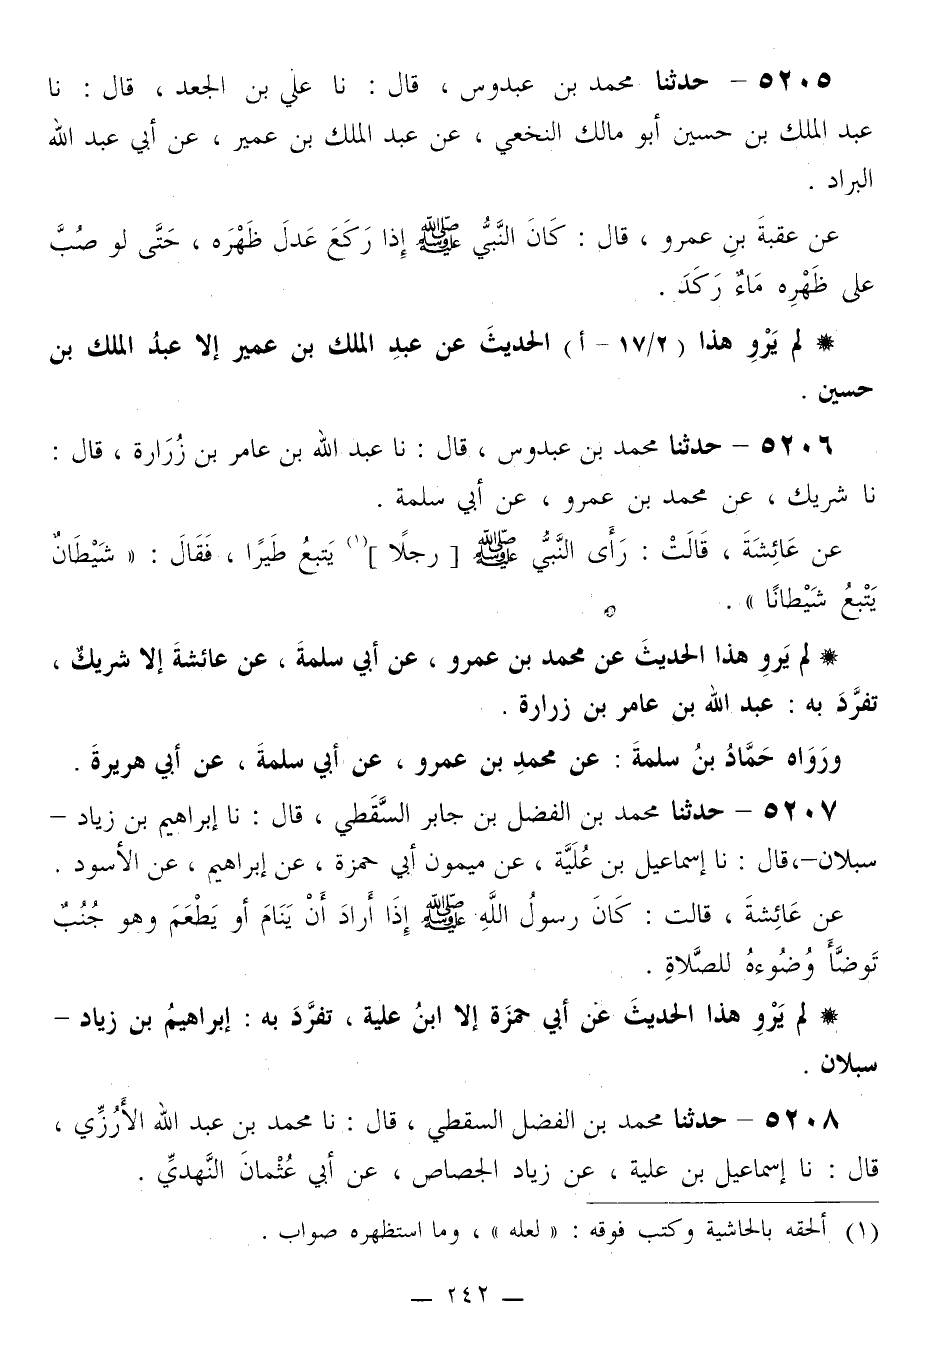 ٥٢٠٥ – حدثنا محمد بن عبدوس ، قال : نا علي بن الجعد ، قال : نا
عبد الملك بن حسين أبو مالك النخعي ، عن عبد الملك بن عمير ، عن أبي عبد الله
البراد .
عن عقبةَ بنِ عمرو ، قال : كَانَ النَّبيُّ ﷺ إِذا رَكَعَ عَدلَ ظَهْرَه ، حَتَّى لو صُبَّ
على ظَهْرِه مَاءٌ رَكَدَ .
* لم يَرْوِ هذا ( ١٧/٢ – أ ) الحديثَ عن عبدِ الملك بن عمير إلا عبدُ الملك بن
حسين .
٥٢٠٦ – حدثنا محمد بن عبدوس ، قال : نا عبد الله بن عامر بن زُرَارة ، قال :
نا شريك ، عن محمد بن عمرو ، عن أبي سلمة .
عن عَائِشَةَ ، قَالَتْ : رَأَى النَّبيُّ ﷺ [ رجلًا ](١) يَتبعُ طَيرًا ، فَقَالَ : « شَيْطَانٌ
يَتْبعُ شَيْطانًا » .
* لم يَروِ هذا الحديثَ عن محمد بن عمرو ، عن أبي سلمةَ ، عن عائشةَ إلا شريكٌ ،
تفرَّدَ به : عبد الله بن عامر بن زرارة .
ورَوَاه حَمَّادُ بنُ سلمةَ : عن محمدِ بن عمرو ، عن أبي سلمةَ ، عن أبي هريرةَ .
٥٢٠٧ – حدثنا محمد بن الفضل بن جابر السَّقَطي ، قال : نا إبراهيم بن زياد –
سبلان–،قال : نا إسماعيل بن عُلَيَّة ، عن ميمون أبي حمزة ، عن إبراهيم ، عن الأسود .
عن عَائِشةَ ، قالت : كَانَ رسولُ اللَّهِ ﷺ إِذَا أَرادَ أَنْ يَنَامَ أو يَطْعَمَ وهو جُنُبٌ
تَوضَّأَ وُضُوءهُ للصَّلاةِ .
* لم يَرْوِ هذا الحديثَ عَن أبي حمزَة إلا ابنُ علية ، تفرَّدَ به : إبراهيمُ بن زياد –
سبلان .
٥٢٠٨ – حدثنا محمد بن الفضل السقطي ، قال : نا محمد بن عبد الله الأَرُزِّي ،
قال : نا إسماعيل بن علية ، عن زياد الجصاص ، عن أبي عُثْمانَ النَّهديِّ .
(١) ألحقه بالحاشية وكتب فوقه : « لعله » ، وما استظهره صواب .
– ٢٤٢ –